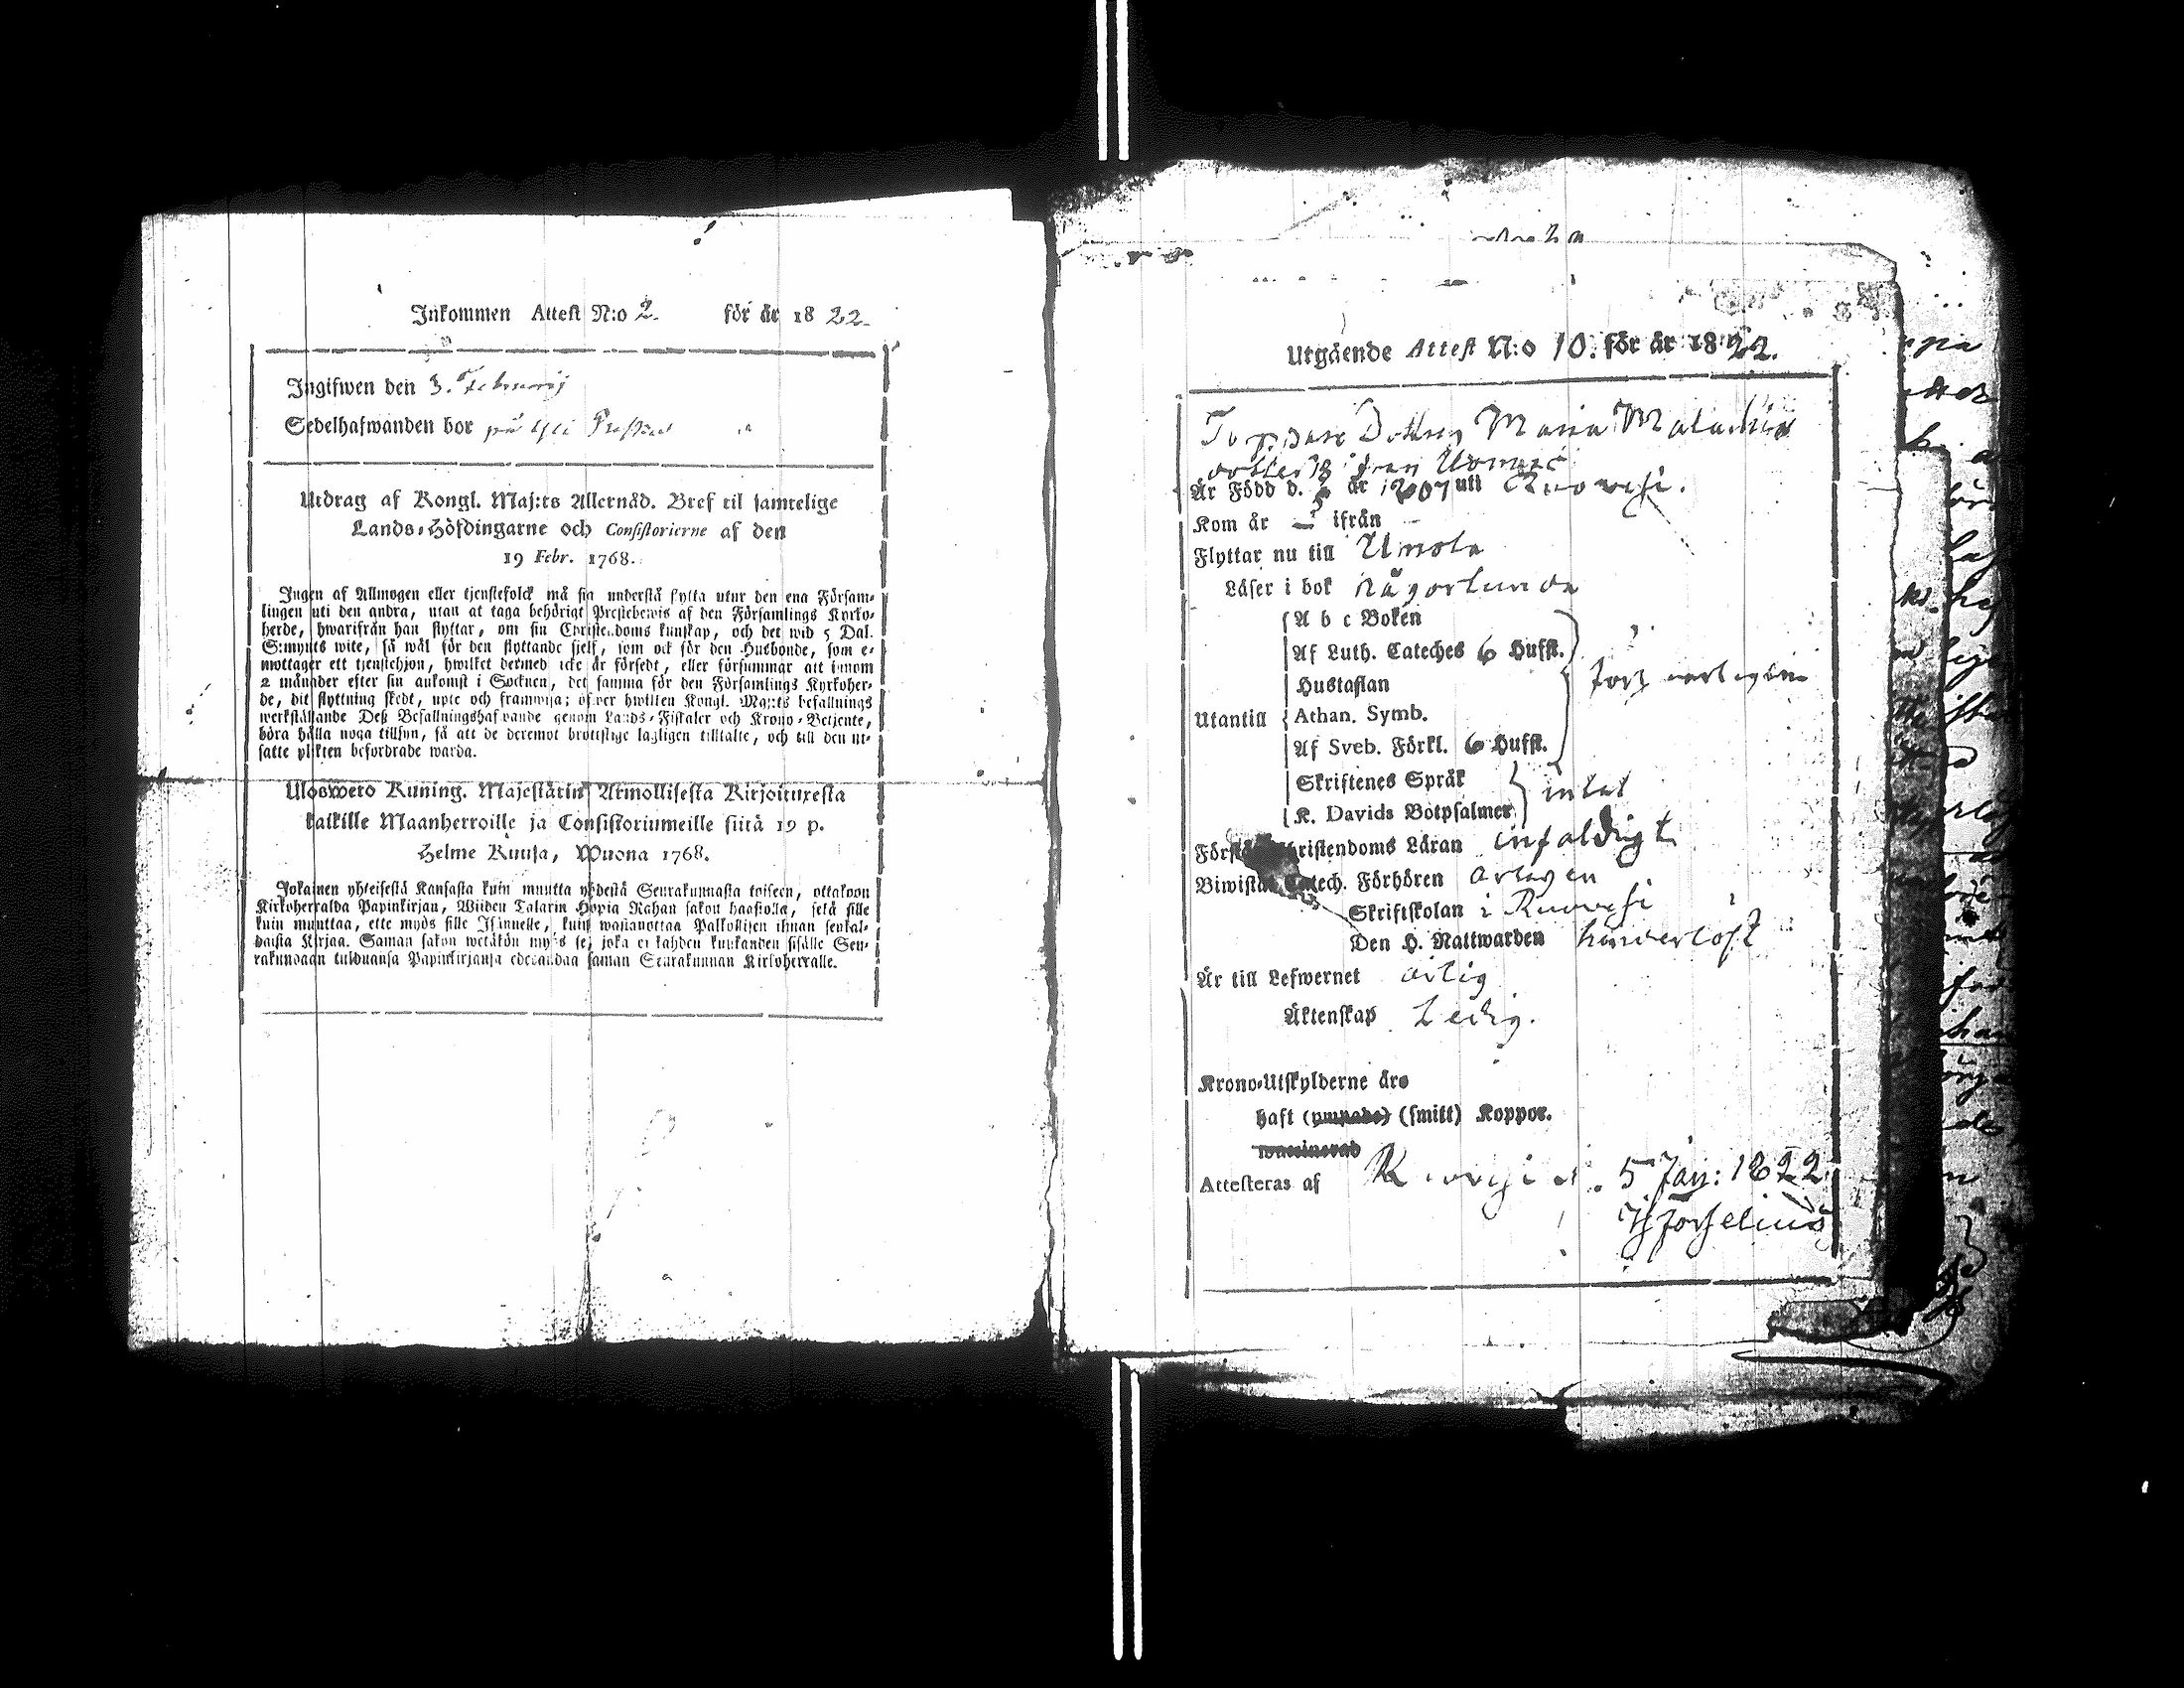 Inkommen Attest N:o 2. för år 1822.
Ingifwen den 3. Februarij
Sedelhafwanden bor på
Utdrag af Kongl. Maj:ts Allernåd. Bref til samtelige
Lands-Höfdingarne och Consistorierne af den
19 Febr. 1768.
Ingen af Allmogen eller tjenstefolck må sig understå flytta utur den ena Församlingen
lingen uti den andra, utan at taga behörigt Prestebewis af den Församlings Kyrko-
herde, hwarifrån han flyttar, om sin Christendoms kunskap, och det wid 5 Dal.
S:mynts wite, så wäl för den flyttande sjelf, som ock för den Husbonde, som e-
mottager ett tjenstehjon, hwilket dermed icke är försedt, eller försummar att innom
2 månader efter sin ankomst i Socknen, det samma för den Församlings Kyrkoher-
de, dit flyttning skedt, upte och framwisa; öfwer hwilken Kongl. Maj:ts befallnings
werkställande Deß Befallningshafwande genom Lands-Fiskaler och Krono-Betjente,
böra hålla noga tillsyn, så att de deremot brottslige lagligen tilltalte, och till den ut-
satte plikten befordrade warda.
Uloswеto Kuning. Majestätin Armollisesta Kirjoituxesta
kaikille Maanherroille ja Consistoriumeille siitä 19 p.
Helme Kuusa, Wuona 1768.
Jokainen yhteisestä Kansasta kuin muutta yhdestä Seurakunnasta toiseen, ottakoon
Kirkoherralda Papinkirjan, Wiiden Talarin Hopia Rahan sakon haastolla, sekä sille
kuin muuttaa, ette myös sille Isännelle, kuin wastanottaa Palkollisen ilman senkal-
daista Kirjaa. Saman sakon wetäkön myös se, joka ei kahden kuukauden sisälle Seu-
rakundaan tulduansa Papinkirjansa edesandaa saman Seurakunnan Kirkoherralle.
Utgående Attest N:o 10. för år 1822.
Torppare Dottren Maria
från
Är Född d. år 1807 uti Ruovesi.
Kom år — ifrån —
Flyttar nu till
Läser i bok någorlunda
Utantill
A b c Boken
Af Luth. Cateches 6 Hufst.
Hustaflan
Athan. Symb.
Af Sveb. Förkl. 6 Hufst.
Skriftenes Språk
K. Davids Botpsalmer
intet
Förstår Christendoms Läran enfaldigt
Biwistat Catech. Förhören årligen
Skriftskolan i Ruovesi
Den H. Nattwarden hinderlöst
Är till Lefwernet ärlig
Äktenskap Ledig.
Krono-Utskylderne äro
haft (ympade) (smitt) Koppor.
waccinerad
Attesteras af Ruovesi d. 5 Jan: 1822